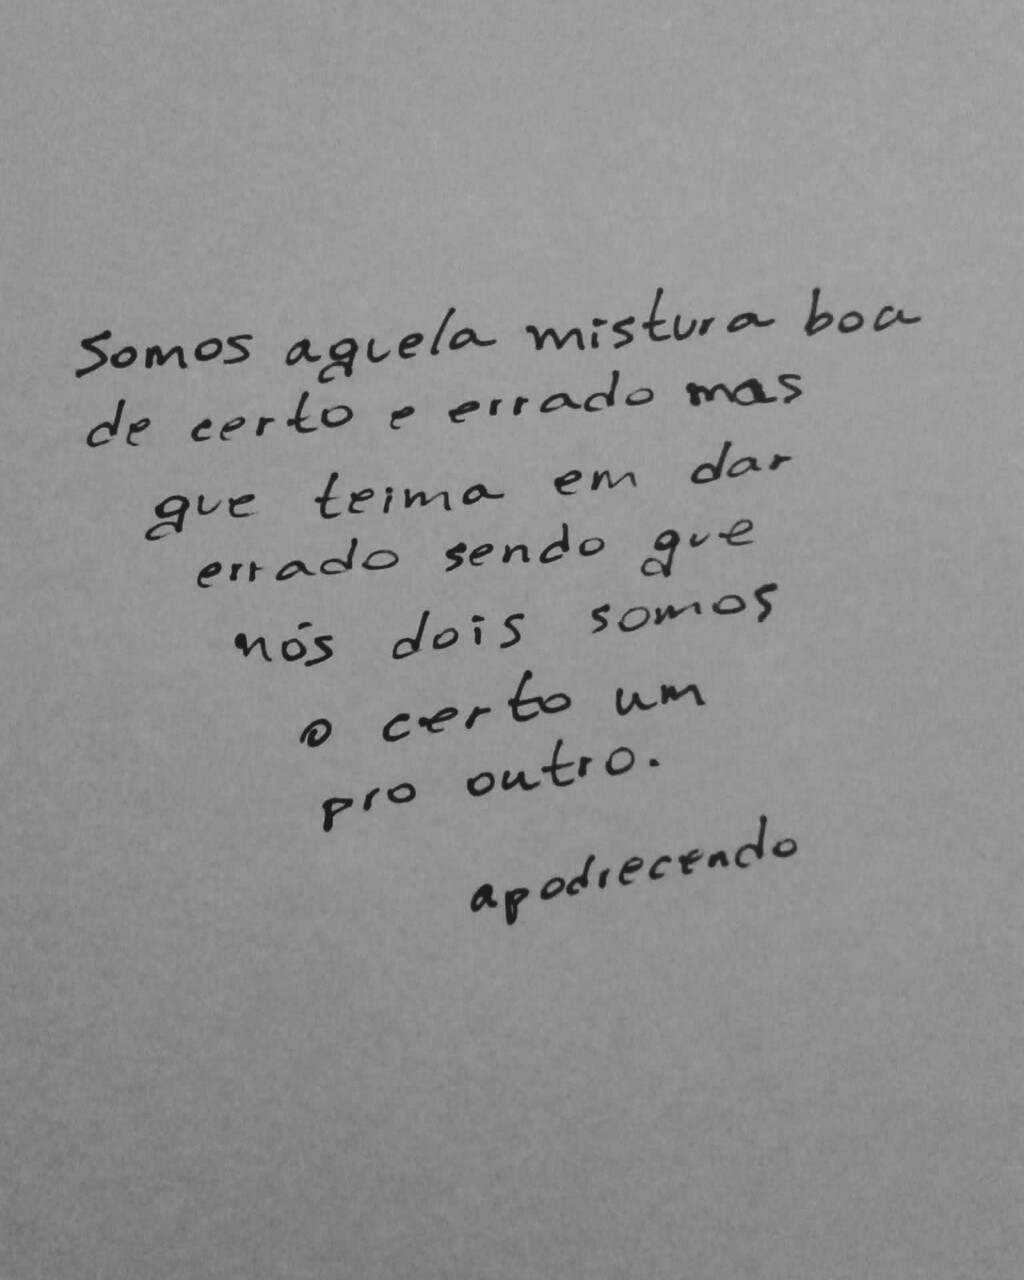 Somos aquela mistura boa
de certo e errado mas
que teima em dar
errado sendo que
nós dois somos
o certo um
pro outro.
apodrecendo